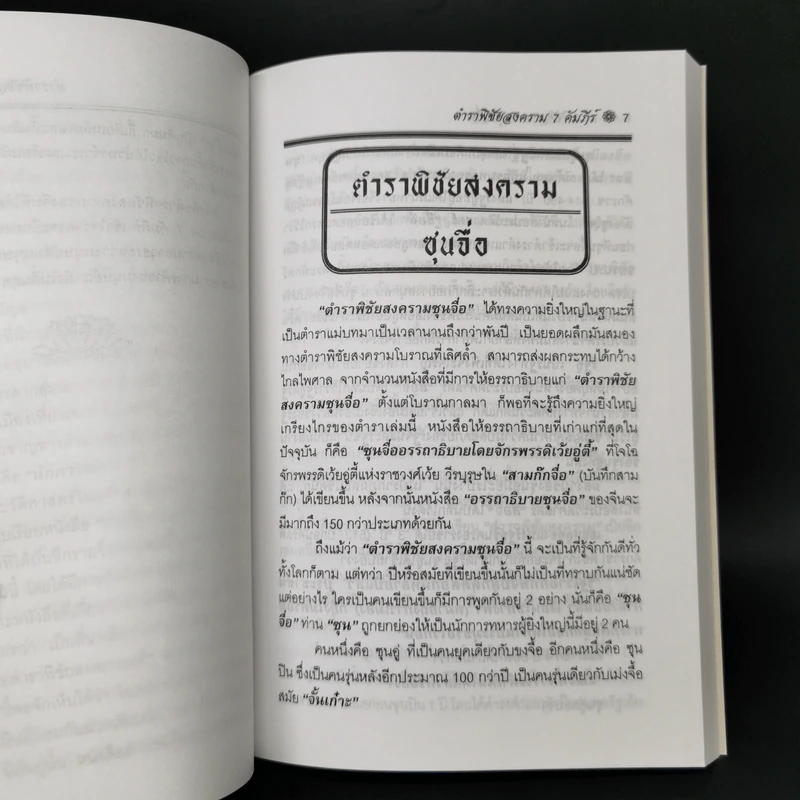 ตำราพิชัยสงคราม 7 คัมภีร์ 7
ตำราพิชัยสงคราม
ซุนจื่อ
“ตำราพิชัยสงครามซุนจื่อ” ได้ทรงความยิ่งใหญ่ในฐานะที่
เป็นตำราแม่บทมาเป็นเวลานานถึงกว่าพันปี เป็นยอดผลึกมันสมอง
ทางตำราพิชัยสงครามโบราณที่เลิศล้ำ สามารถส่งผลกระทบได้กว้าง
ไกลไพศาล จากจำนวนหนังสือที่มีการให้อรรถาธิบายแก่ “ตำราพิชัย
สงครามซุนจื่อ” ตั้งแต่โบราณกาลมา ก็พอที่จะรู้ถึงความยิ่งใหญ่
เกรียงไกรของตำราเล่มนี้ หนังสือให้อรรถาธิบายที่เก่าแก่ที่สุดใน
ปัจจุบัน ก็คือ “ซุนจื่ออรรถาธิบายโดยจักรพรรดิเว้ยอู่ตี้” ที่โจโฉ
จักรพรรดิเว้ยอู่ตี้แห่งราชวงศ์เว้ย วีรบุรุษใน “สามก๊กจื่อ” (บันทึกสาม
ก๊ก) ได้เขียนขึ้น หลังจากนั้นหนังสือ “อรรถาธิบายซุนจื่อ” ของจีนจะ
มีมากถึง 150 กว่าประเภทด้วยกัน
ถึงแม้ว่า “ตำราพิชัยสงครามซุนจื่อ” นี้ จะเป็นที่รู้จักกันดีทั่ว
ทั้งโลกก็ตาม แต่ทว่า ปีหรือสมัยที่เขียนขึ้นนั้นก็ไม่เป็นที่ทราบกันแน่ชัด
แต่อย่างไร ใครเป็นคนเขียนขึ้นก็มีการพูดกันอยู่ 2 อย่าง นั่นก็คือ “ซุน
จื่อ” ท่าน “ซุน” ถูกยกย่องให้เป็นนักการทหารผู้ยิ่งใหญ่นี้มีอยู่ 2 คน
คนหนึ่งคือ ซุนอู่ ที่เป็นคนยุคเดียวกับขงจื้อ อีกคนหนึ่งคือ ซุน
ปิน ซึ่งเป็นคนรุ่นหลังอีกประมาณ 100 กว่าปี เป็นคนรุ่นเดียวกับเม่งจื้อ
สมัย “จั้นเก๋าะ”